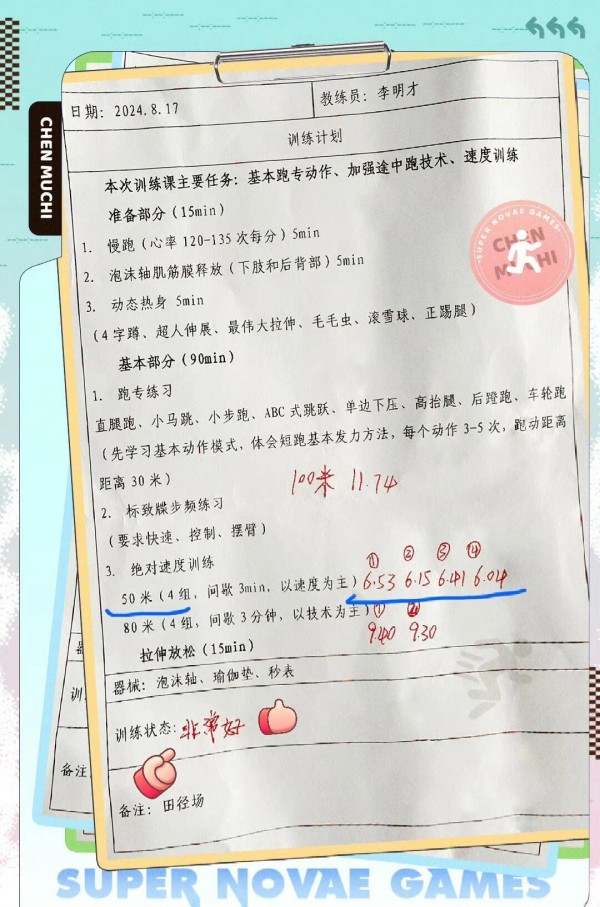 日期: 2024.8.17
教练员: 李明才
训练计划
本次训练课主要任务: 基本跑专动作、加强途中跑技术、速度训练
准备部分(15min)
1. 慢跑(心率 120-135 次每分)5min
2. 泡沫轴肌筋膜释放(下肢和后背部)5min
3. 动态热身 5min
(4 字蹲、超人伸展、最伟大拉伸、毛毛虫、滚雪球、正踢腿)
基本部分(90min)
1. 跑专练习
直腿跑、小马跳、小步跑、ABC 式跳跃、单边下压、高抬腿、后蹬跑、车轮跑
(先学习基本动作模式, 体会短跑基本发力方法, 每个动作 3-5 次, 跑动距离
距离 30 米)
100米 11.74
2. 标致牒步频练习
(要求快速、控制、摆臂)
3. 绝对速度训练
① ② ③ ④
50 米(4 组, 间歇 3min, 以速度为主) 6.53 6.15 6.41 6.04
80 米(4 组, 间歇 3 分钟, 以技术为主) ① ②
9.40 9.30
拉伸放松(15min)
器械: 泡沫轴、瑜伽垫、秒表
训练状态: 非常好
备注: 田径场
CHEN MUCHI
SUPER NOVAE GAMES
CHEN
MUCHI
器
训
备注
SUPER NOVAE GAMES